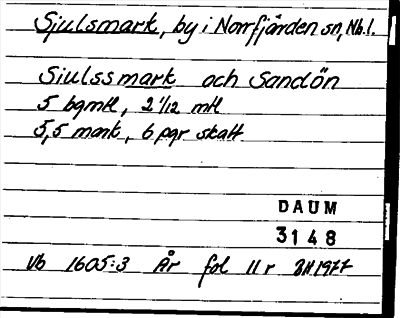 Sjulsmark, by i Norrfjärden sn, Nb.l.
Siulssmark och Sandön
5 bgmtl, 2 1/12 mtl
5,5 mark, 6 pgr skatt
DAUM
3148
Vb 1605:3 År fol 11 r BH 1977